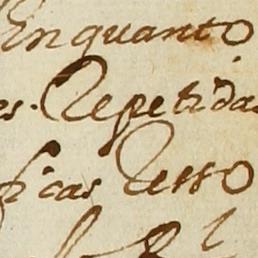 Enquanto
es. Repetidas
ficas Resso